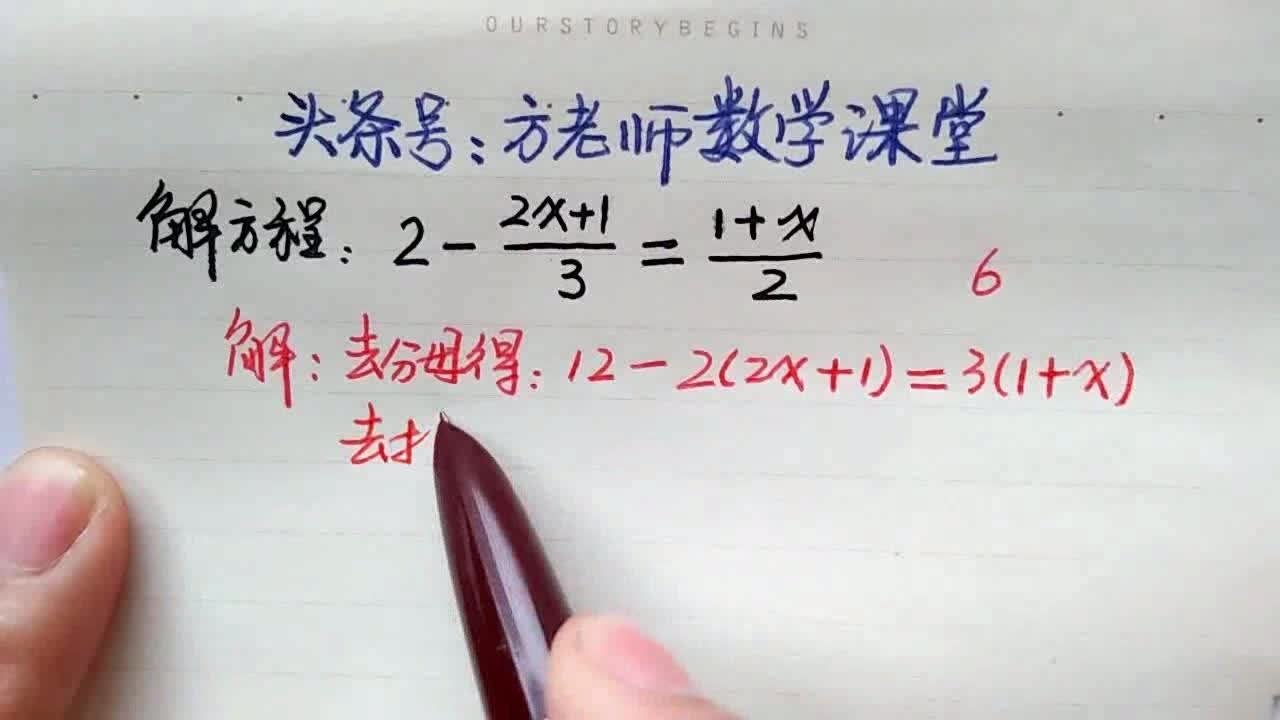 OURSTORYBEGINS
头条号：方老师数学课堂
解方程：2 - \frac{2x+1}{3} = \frac{1+x}{2}
6
解：去分母得：12-2(2x+1)=3(1+x)
去扌